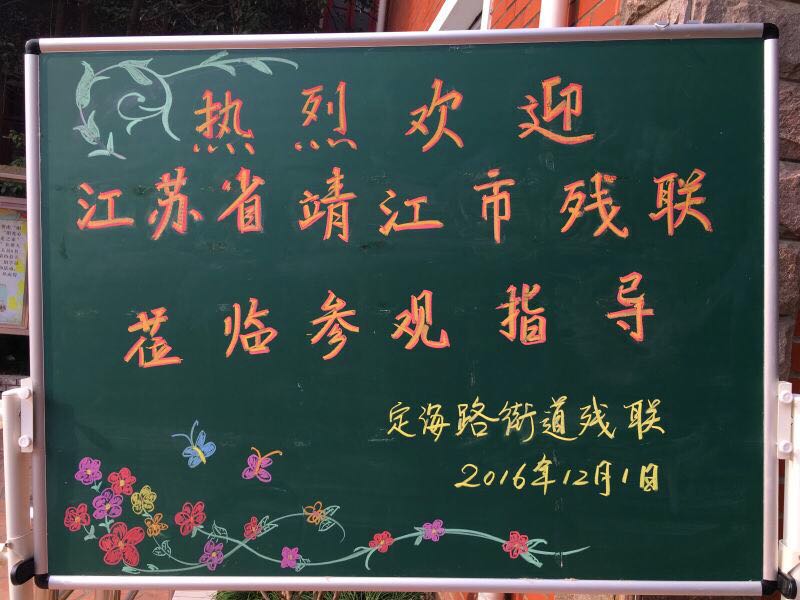 热烈欢迎
江苏省靖江市残联
莅临参观指导
定海路街道残联
2016年12月1日